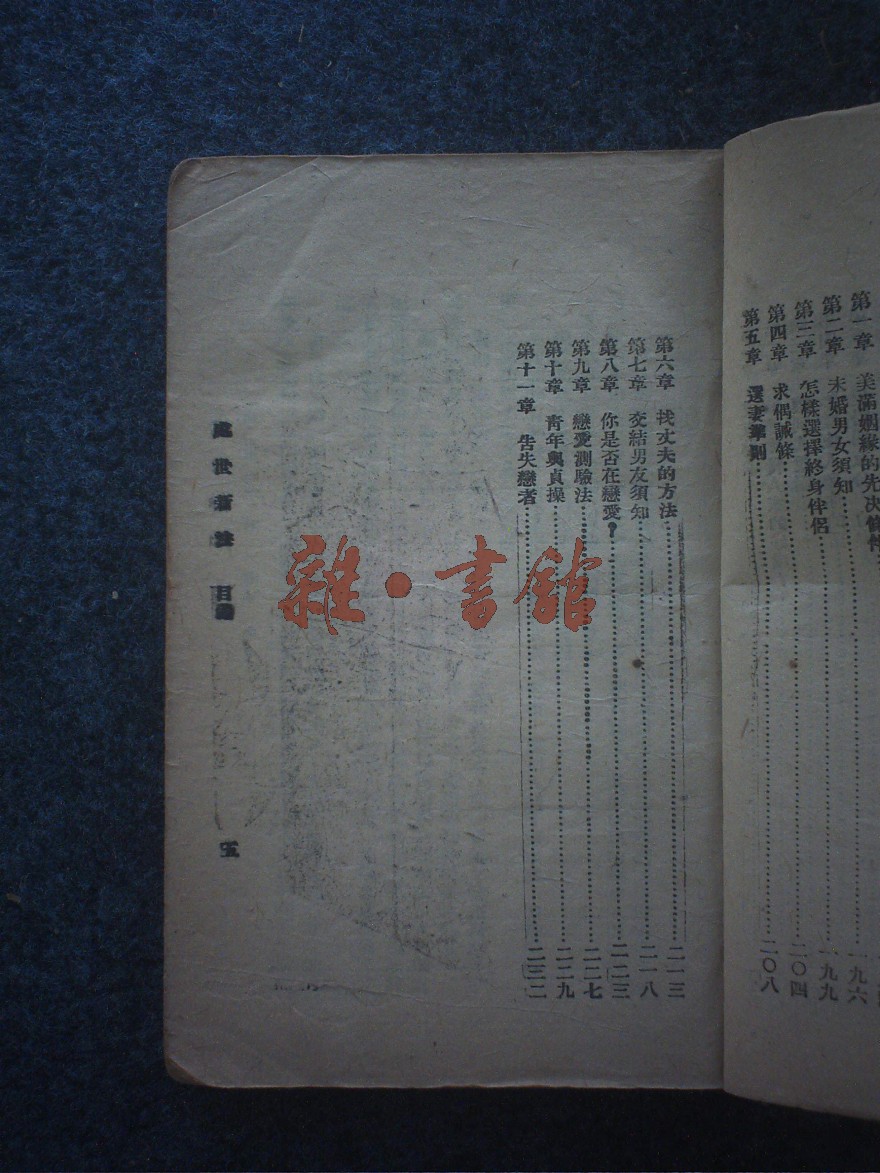 第一章 美滿姻緣的先決條件
第二章 未婚男女須知……一九六
第三章 怎樣選擇終身伴侶……一九九
第四章 求偶誡條……二〇四
第五章 選妻準則……二〇八
第六章 找丈夫的方法……二一三
第七章 交結男友須知……二一八
第八章 你是否在戀愛？……二二三
第九章 戀愛測驗法……二二七
第十章 青年與貞操……二二九
第十一章 告失戀者……二三二
處世新法 目錄 五
雜·書館